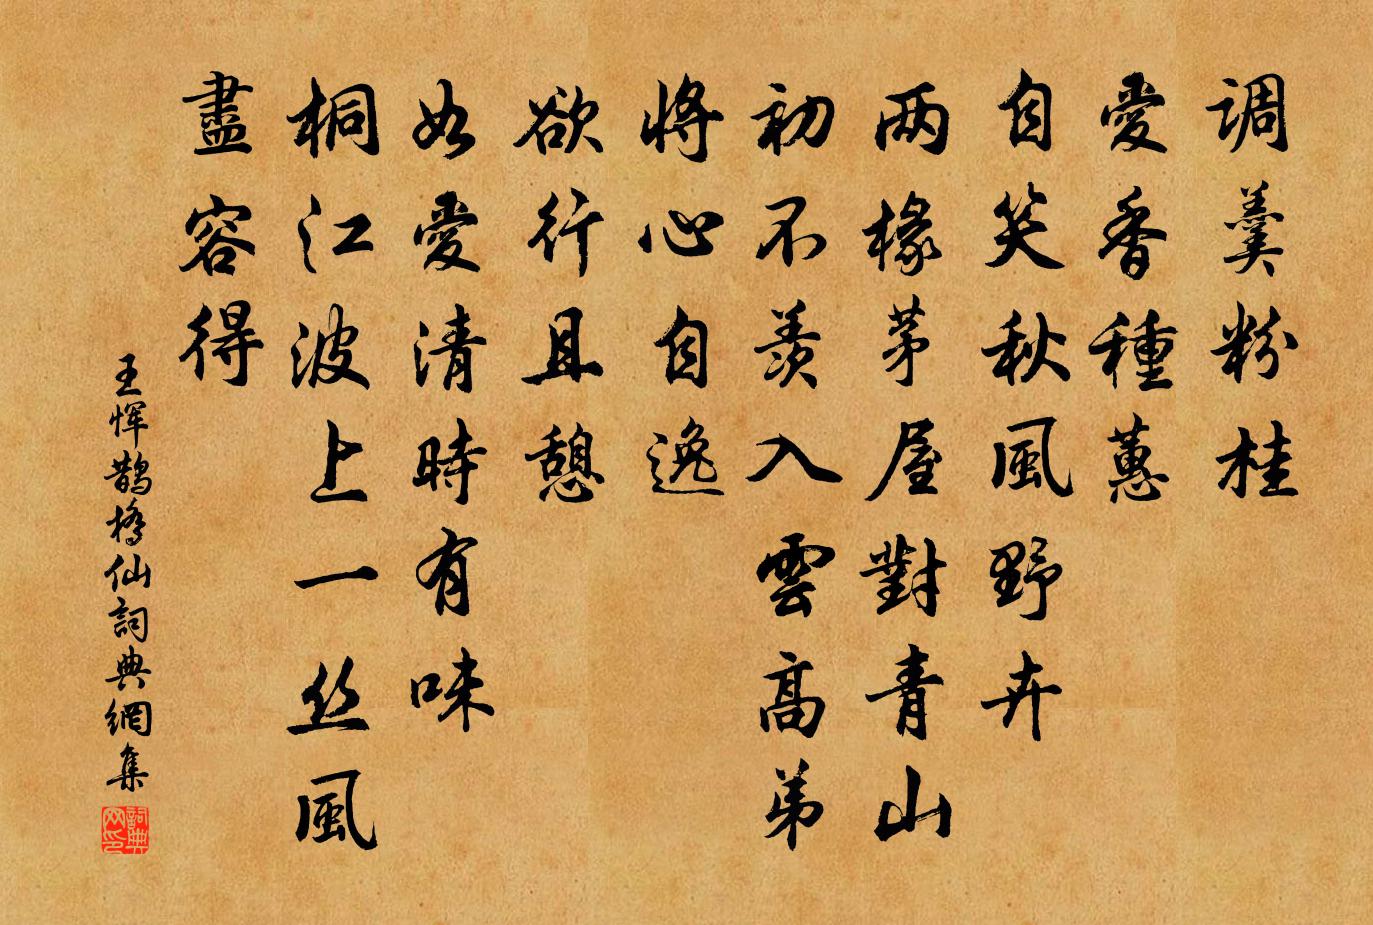 调羹粉桂
愛香種蕙
自笑秋風野卉
两椽茅屋對青山
初不羨入雲高弟
將心自逸
欲行且憩
如愛清時有味
桐江波上一丝風
盡容得
王恽鵲橋仙詞典網集
詞典网印